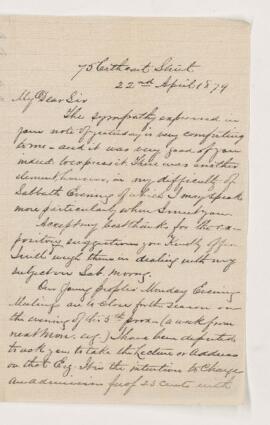 75 Cathcart Street
22nd April 1879
My Dear Sir
The sympathy expressed in
your note of yesterday is very comforting
to me - and it was very good of you
indeed to express it. There was another
element however, in my difficulty of
Sabbath Evening of which I may speak
more particularly when I meet you.
Accept my best thanks for the ex-
pository suggestions you kindly offer
I will weigh them in dealing with my
subject on Sab. Morng.
Our Young People's Monday Evening
Meetings are to close for the season on
the evening of the 5th prox. (a week from
next Mon. evg.) I have been deputed
to ask you to take the Lecture or Address
on that Evg. It is the intention to charge
an admission fee of 25 cents with